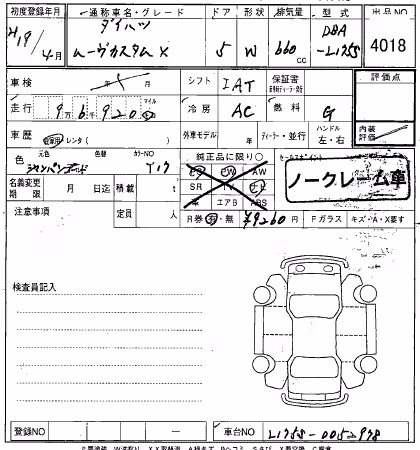 初度登録年月 通称車名・グレード ドア 形状 排気量 型式 出品NO
H19年4月 ダイハツ ムーヴカスタムX 5 W 660cc DBA-L175S 4018
車検 年 月 シフト IAT 保証書 評価点
走行 9 6 9 2 0 マイル km 冷房 AC 燃料 G
車歴 自家用・レンタ( ) 外車モデル 年 ディーラー・並行 ハンドル 左・右 内装評価
色 元色 色替 カラーNO 純正品に限り○ セールスポイント
シャンパンゴールド T17 AW
名義変更期限 月 日迄 積載 t SR TV ノークレーム車
注意事項 定員 人 革 エアB ABS
R券 有・無 ¥9260円 Fガラス キズ・A・X要す
検査員記入
登録NO 車台NO L175S-0052978